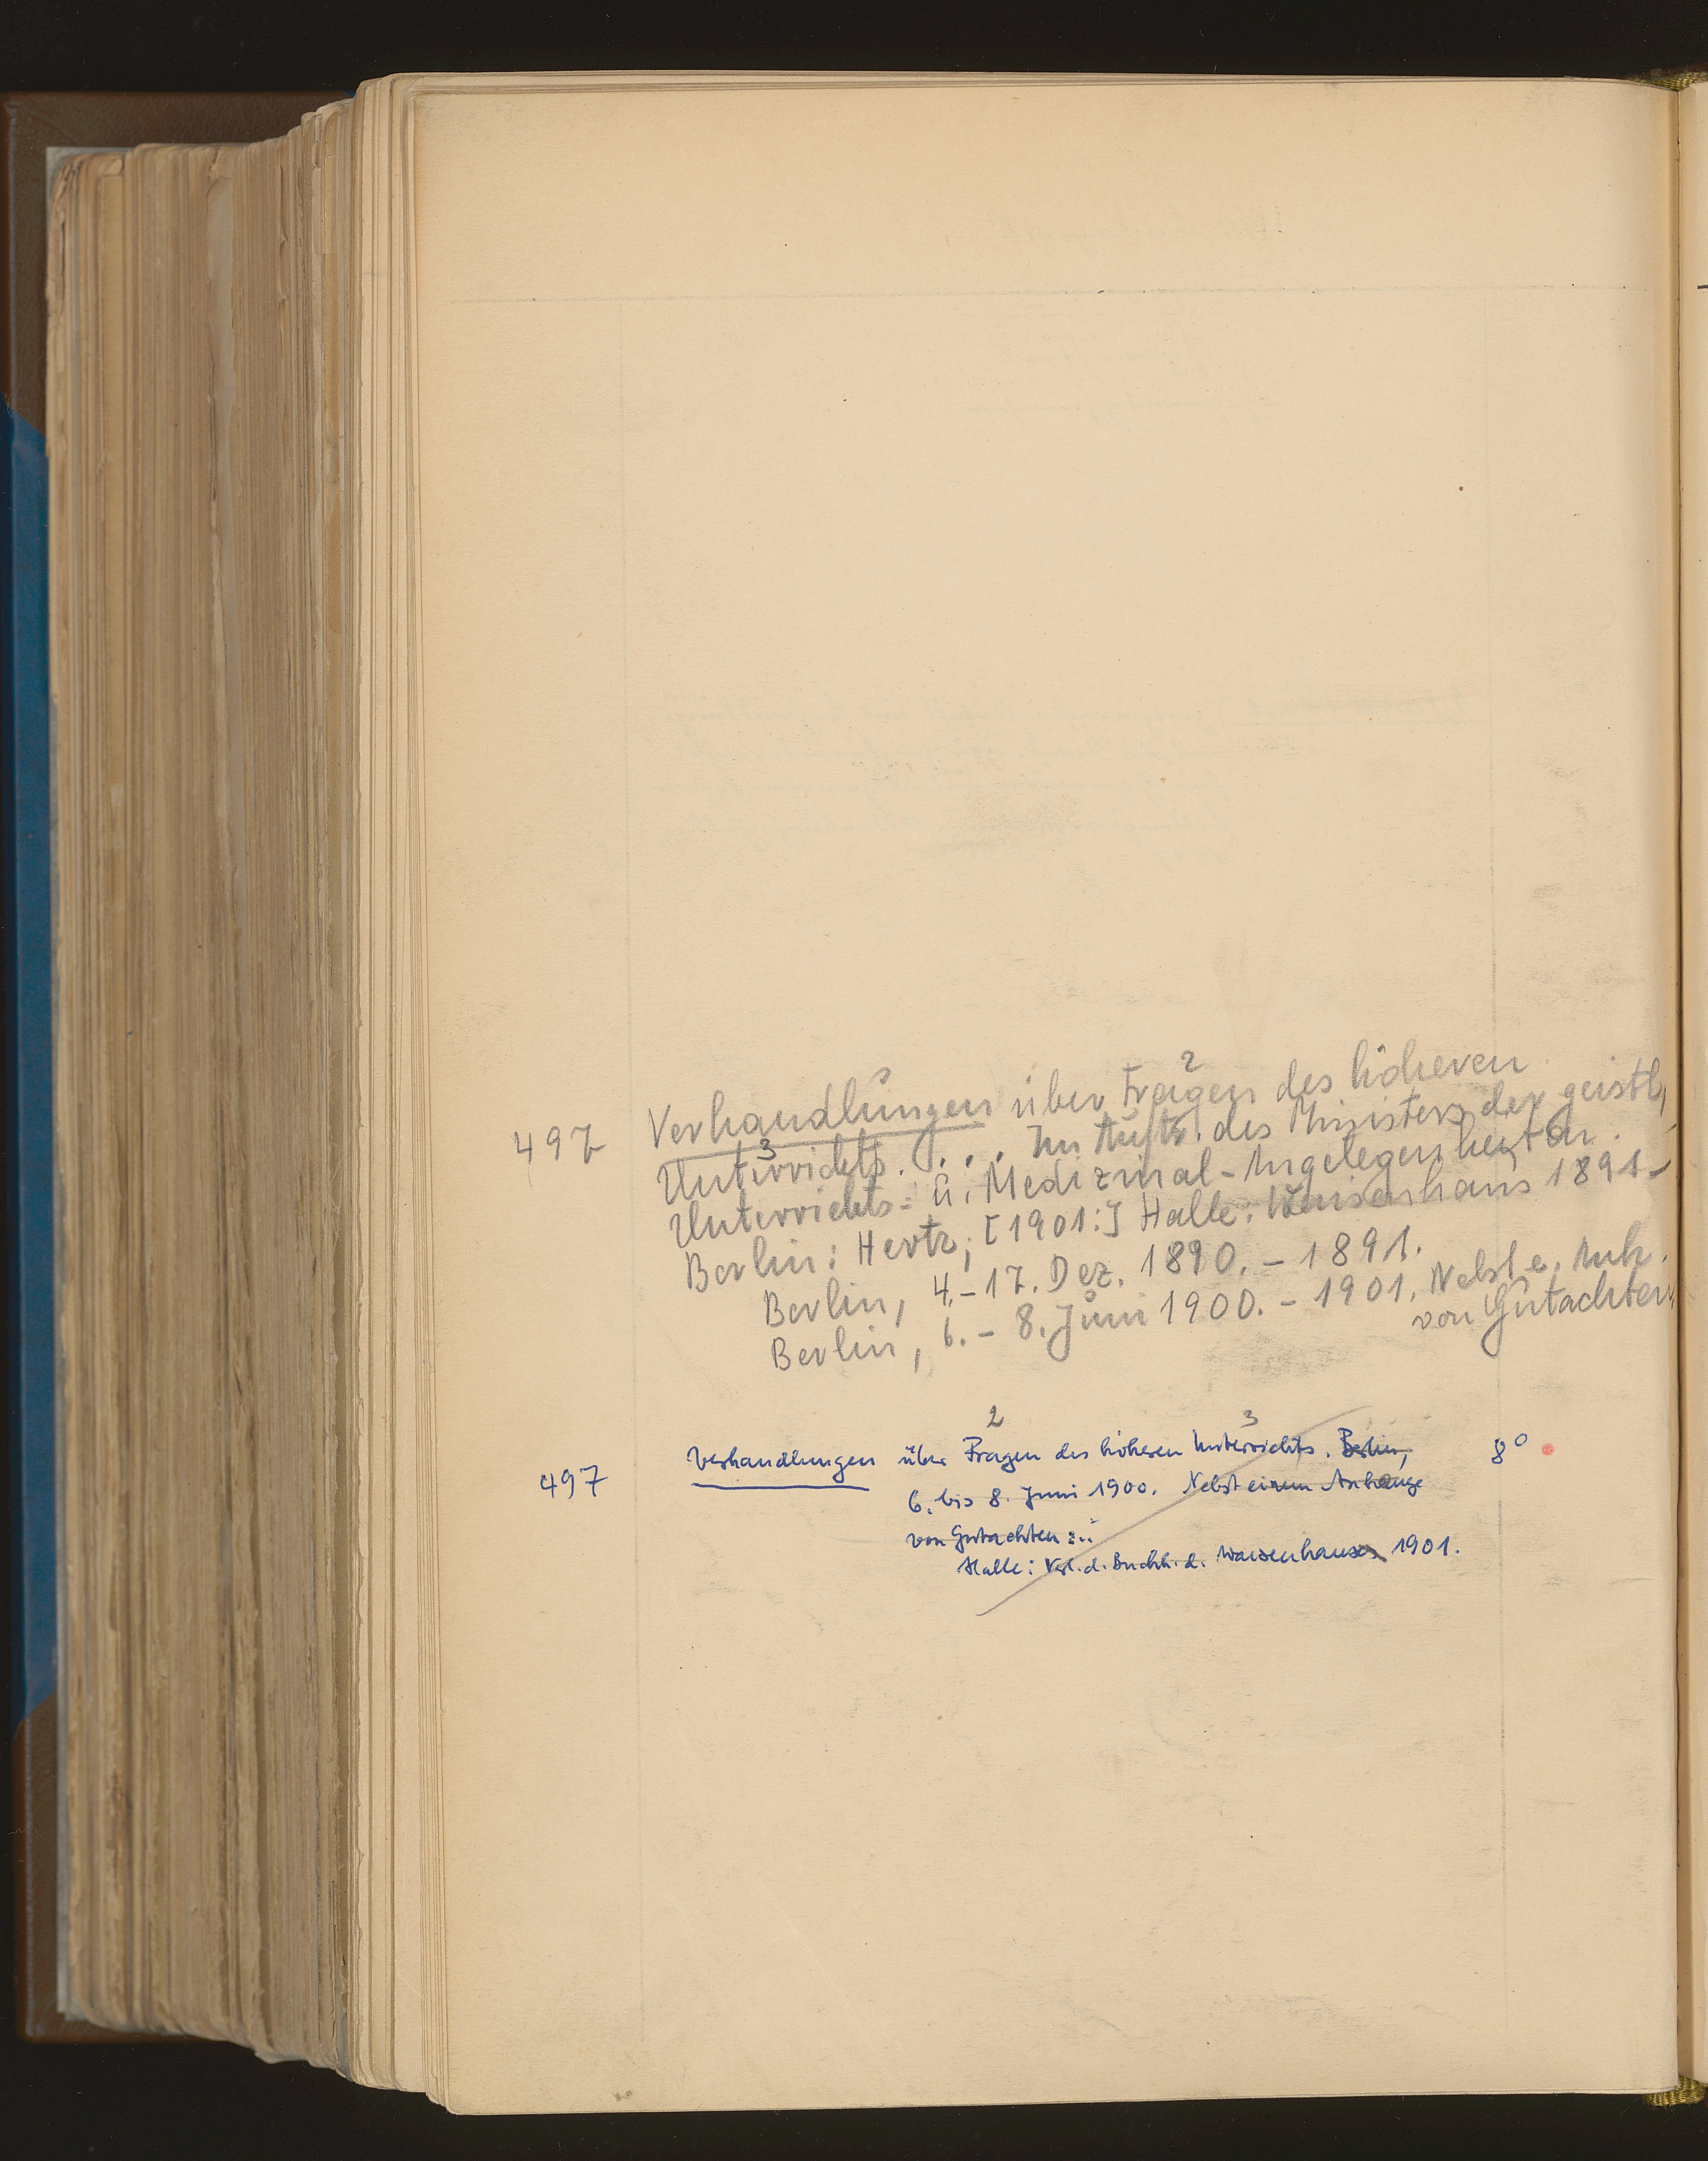 497 Verhandlungen über Fragen² des höheren
Unterrichts³. . . . Im Auftr. des Ministers der geistl.,
Unterrichts- u. Medizinal-Angelegenheiten.
Berlin: Hertz; [1901:] Halle: Waisenhaus 1891-
Berlin, 4.-17. Dez. 1890. - 1891.
Berlin, 6. - 8. Juni 1900. - 1901. Nebst e. Anh.
von Gutachten
2 3
497 Verhandlungen über Fragen des höheren Unterrichts. Berlin, 8°
6. bis 8. Juni 1900. Nebst einem Anhange
von Gutachten ...
Halle: Verl. d. Buchh. d. Waisenhauses 1901.